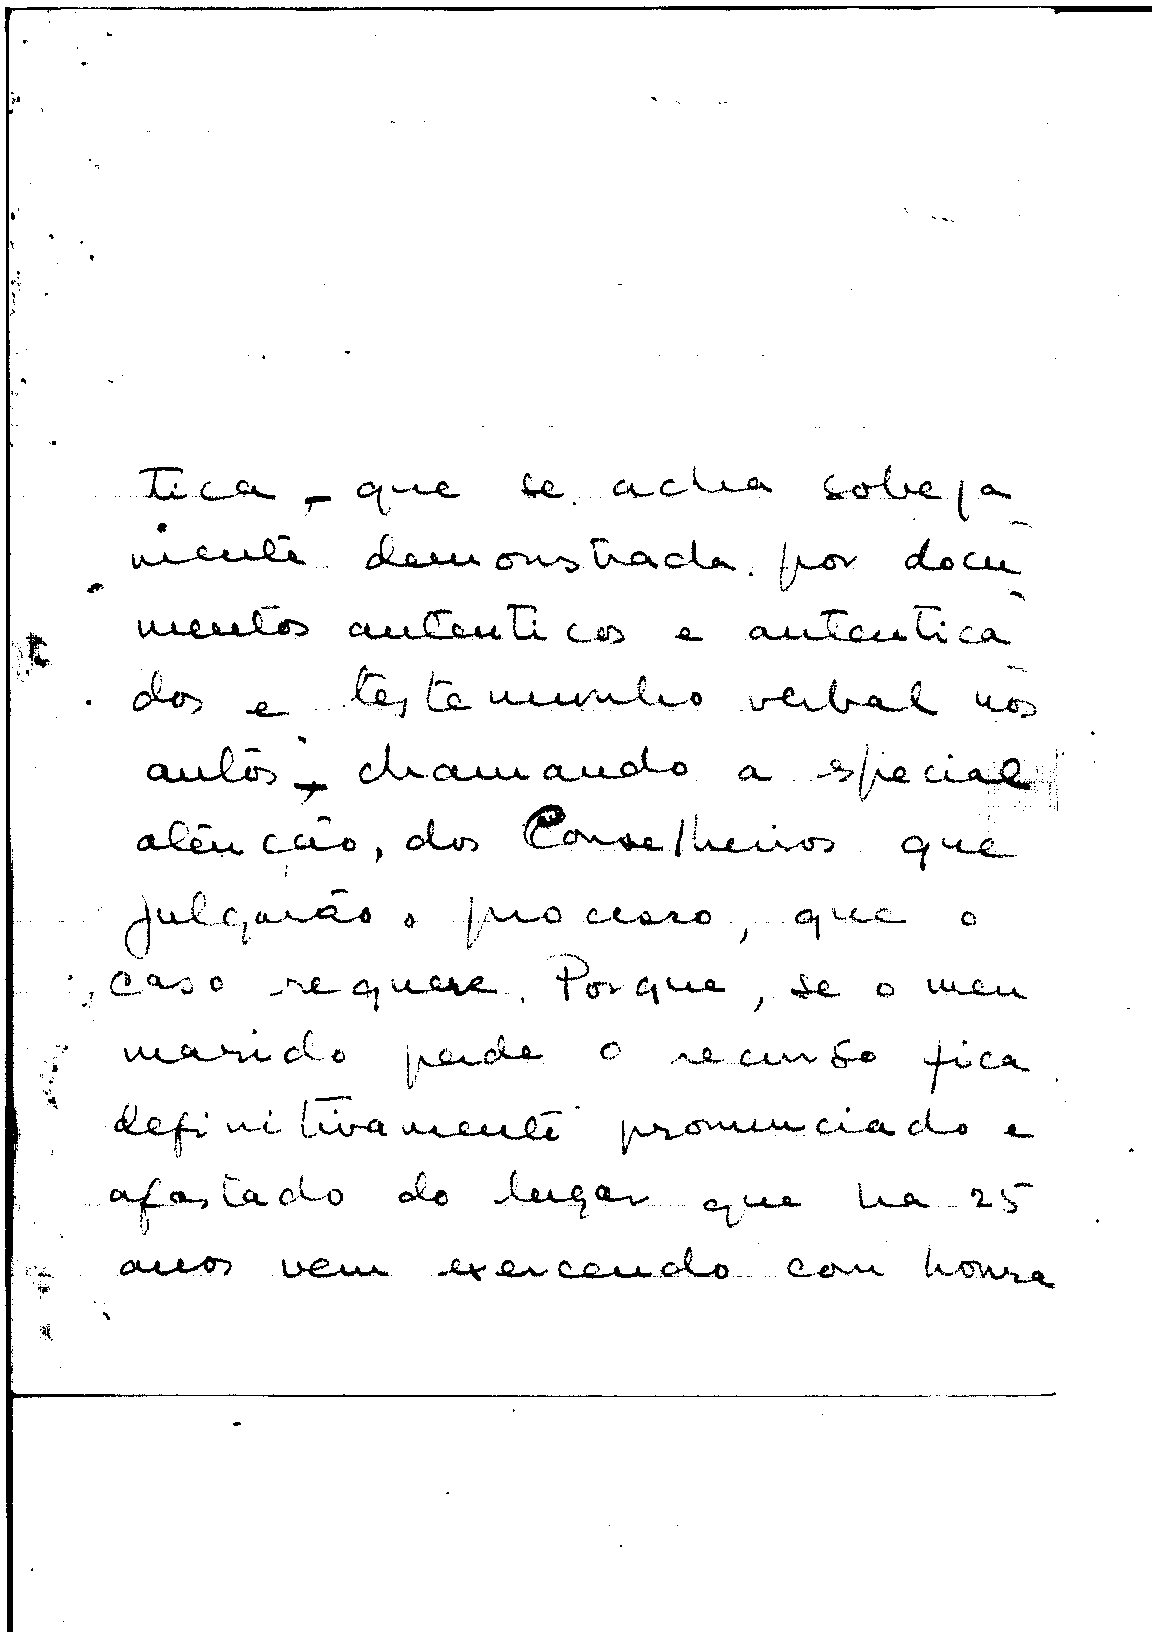 tica, - que se acha sobeja
mente demonstrada por docu
mentos autenticos e autentica
dos e testemunho verbal nos
autos, - chamando a especial
atenção, dos Conselheiros que
julgarão o processo, que o
caso requere. Porque, se o meu
marido perde o recurso fica
definitivamente pronunciado e
afastado do lugar que ha 25
anos vem exercendo com honra